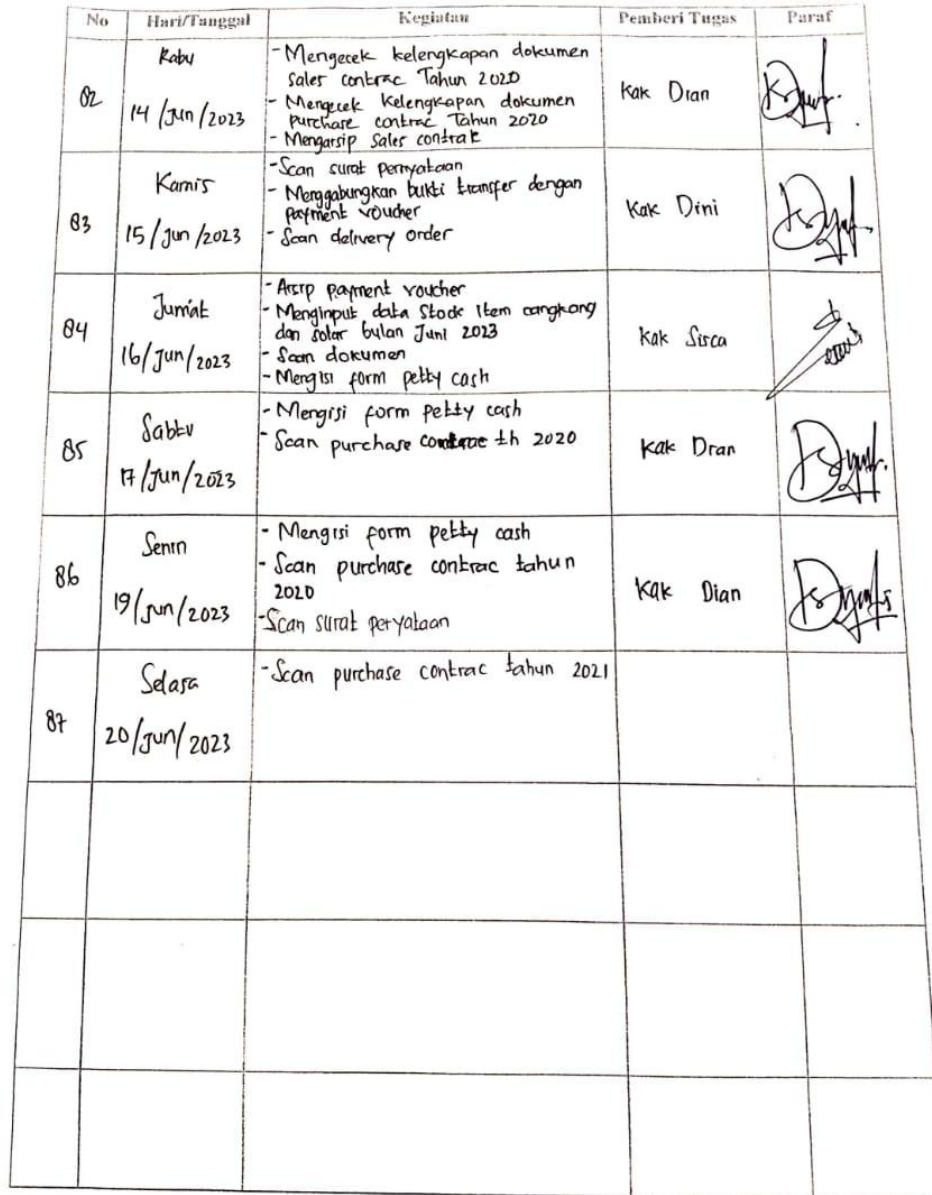 No Hari/Tanggal Kegiatan Pemberi Tugas Paraf
82
Rabu
14/Jun/2023
- Mengecek kelengkapan dokumen
sales contrac Tahun 2020
- Mengecek Kelengkapan dokumen
purchase contrac Tahun 2020
- Mengarsip Sales contrak
Kak Dian
83
Kamis
15/Jun/2023
- Scan surat pernyataan
- Menggabungkan bukti transfer dengan
payment voucher
- Scan delivery order
Kak Dini
84
Jum'at
16/Jun/2023
- Arsip payment voucher
- Menginput data Stock Item cangkang
dan solar bulan Juni 2023
- Scan dokumen
- Mengisi form petty cash
Kak Sisca
85
Sabtu
17/Jun/2023
- Mengisi form petty cash
- Scan purchase contrac th 2020
Kak Dian
86
Senin
19/Jun/2023
- Mengisi form petty cash
- Scan purchase contrac tahun
2020
- Scan surat peryataan
Kak Dian
87
Selasa
20/Jun/2023
- Scan purchase contrac tahun 2021